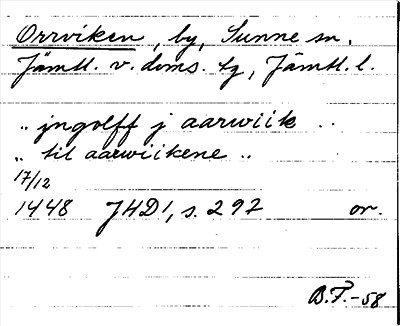 Orrviken, by, Sunne sn.
Jämtl. v. doms. tg, Jämtl. l.
.. jngolff j aarwiik ..
.. til aarwiikene ..
17/12
1448 JHD 1, s. 297 or.
B.F.-58